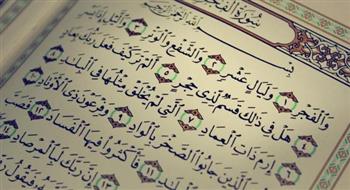 سُورَةُ الفَجْرِ
وَالْفَجْرِ ١ وَلَيَالٍ عَشْرٍ ٢ وَالشَّفْعِ وَالْوَتْرِ ٣ وَالَّيْلِ إِذَا يَسْرِ
هَلْ فِي ذَٰلِكَ قَسَمٌ لِّذِي حِجْرٍ ٥ أَلَمْ تَرَ كَيْفَ فَعَلَ رَبُّكَ بِعَادٍ
٦ إِرَمَ ذَاتِ الْعِمَادِ ٧ الَّتِي لَمْ يُخْلَقْ مِثْلُهَا فِي الْبِلَادِ
الَّذِينَ جَابُوا الصَّخْرَ بِالْوَادِ ٩ وَفِرْعَوْنَ ذِي الْأَوْتَادِ ١٠
الْبِلَادِ ١١ فَأَكْثَرُوا فِيهَا الْفَسَادَ ١٢ فَصَبَّ
إِنَّ رَبَّكَ لَبِالْمِرْصَادِ
فَيَقُولُ